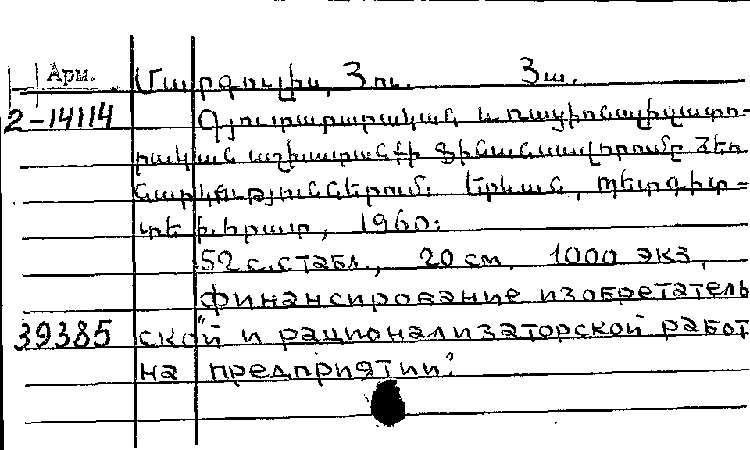 Арм.
Մարգուլիս, Յու. Յա.
2-14114 Գյուտարարական և ռացիոնալիզատո-
րական աշխատանքի ֆինանսավորումը ձեռ
նարկություններում. Երևան, Պետգիտ-
տեխհրատ, 1960:
52 с. с табл., 20 см. 1000 экз.
финансирование изобретатель
39385 ской и рационализаторской работ
на предприятии.